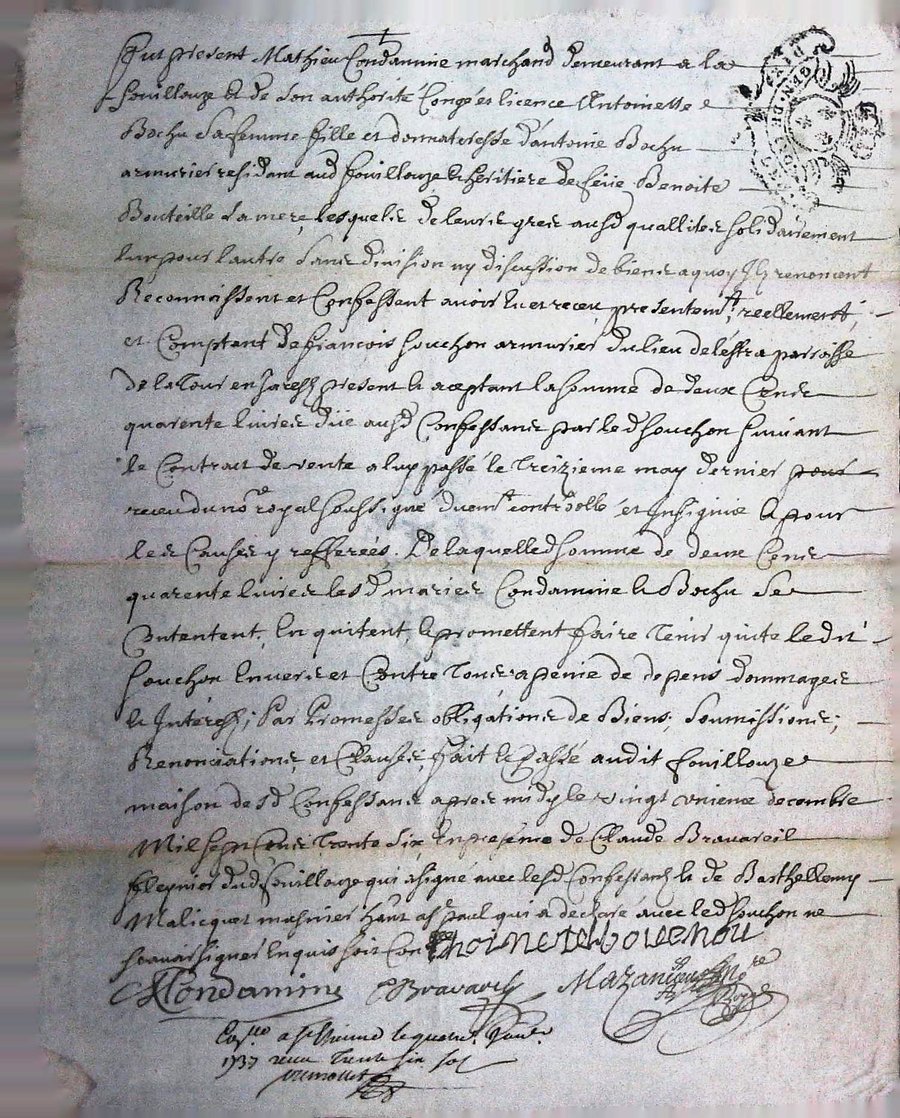 Fut present Mathieu Condamine marchand demeurant a la
fouillouze & de son authorité Congé et licence Antoinette
Bochu sa femme fille et donnateresse d'antoine Bochu
armurier residant aud fouillouze & heritiere de feüe Benoite
Bouteille sa mere, lesquels de leurs gres ausd quallites solidairement
lun pour lautre sans division ny discussion de biens a quoy Ils renoncent
Reconnaissent et Confessent avoir eu et receu presentemt, reellement,
et Comptant de françois souchon armurier du lieu de lestra parroisse
de la Tour en Jarest present & aceptant la somme de deux Cens
quarente livres düe ausd Confessans par led souchon suivant
le Contract de vente a luy passé le Treizieme may dernier
receu du nore royal soussigné duemt controollé et Insignué & pour
les Causes y refferées. De laquelle d somme de deux Cens
quarente livres lesd maries Condamine & Bochu se
Contentent, En quitent, & promettent faire Tenir quite ledit
souchon Envers et Contre Tous a peine de depens dommages
& Interest; Par Promesses obligations de Biens; soumissions;
Renonciations, et Clauses, fait & Passé audit fouillouze
maison desd Confessans apres midy le vingt unieme decembre
Mil sept Cens Trente Six En presence de Claude Bravareil
dud fouillouze qui a signé avec lesd Confessans & de Barthellemy
Malicquet musnier qui a declaré avec led souchon ne
scavoir signer Enquis
Condamine Mazancieux nore
Royal
a st Etienne le janv.
1737 receu Trente six sols